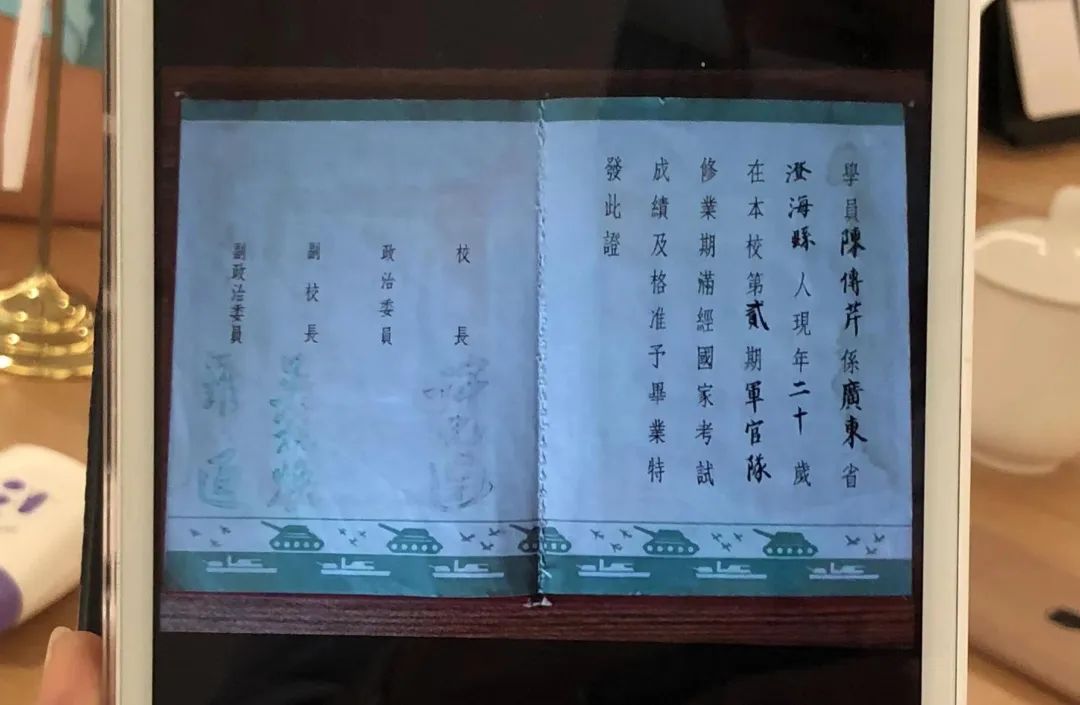 學員陳傳芹係廣東省
澄海縣人現年二十歲
在本校第貳期軍官隊
修業期滿經國家考試
成績及格准予畢業特
發此證
校長
政治委員
副校長
副政治委員